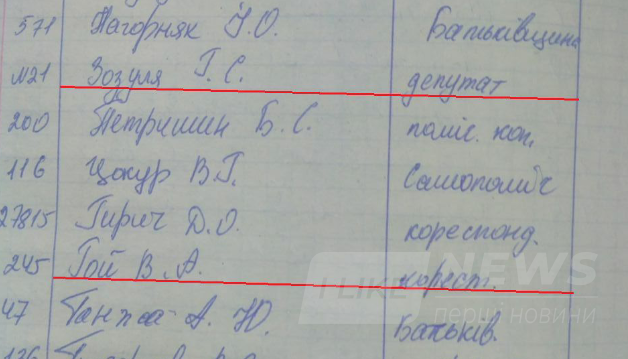 571 Нагорняк І.О. Батьківщина
№21 Зозуля Г. С. депутат
200 Петришин Б. С. поліс. коп.
116 Цокур В.Г. Самопоміч
27815 Гирич Д.О. кореспонд.
245 Гой В. А. корест.
I LIKE NEWS
перші новини
47 Ганжа А. Ю. Батьків.